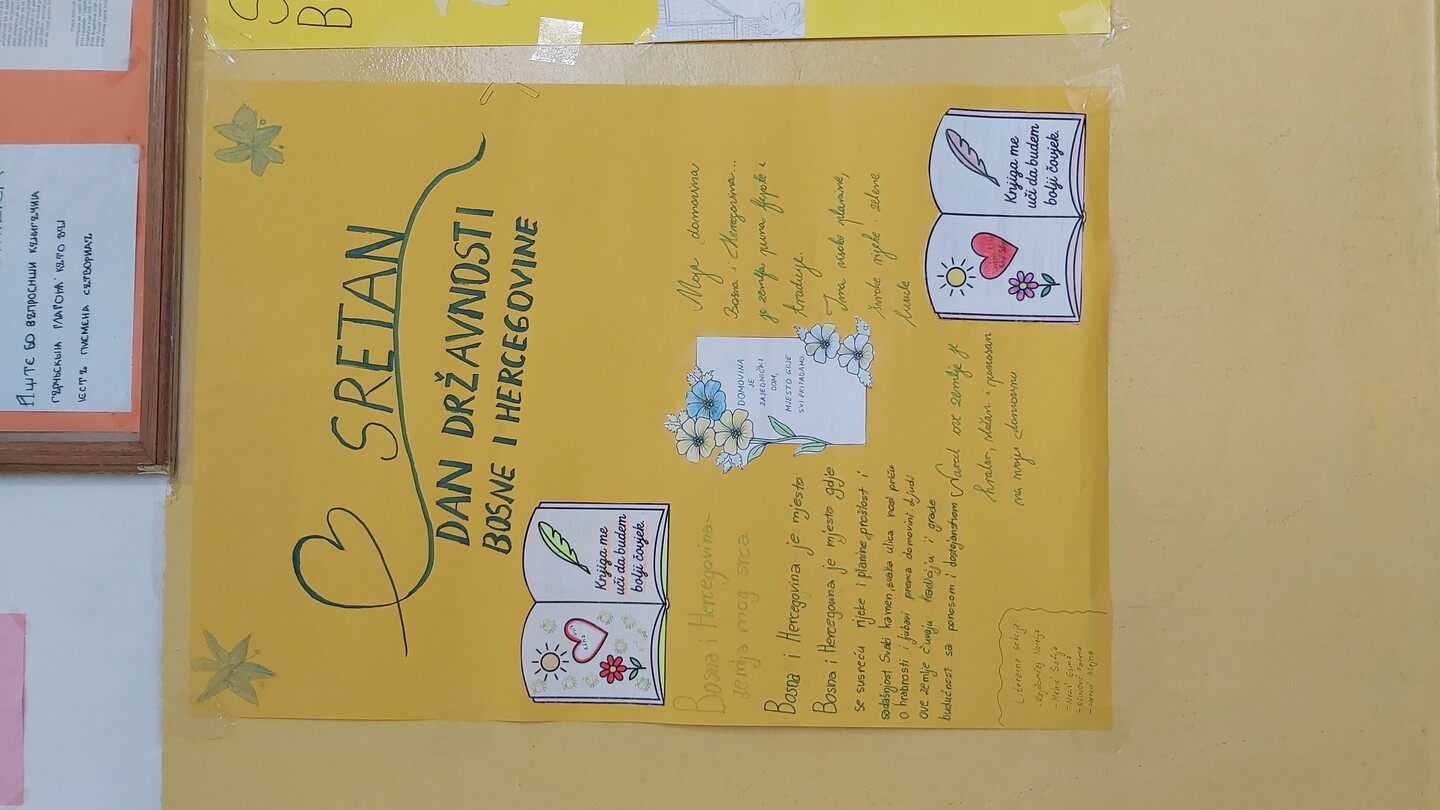 SRETAN
DAN DRŽAVNOSTI
BOSNE I HERCEGOVINE
Knjiga me
uči da budem
bolji čovjek.
Bosna i Hercegovina-
zemlja mog srca
Bosna i Hercegovina je mjesto
Bosna i Hercegovina je mjesto gdje
se susreću rijeke i planine, prošlost i
sadašnjost. Svaki kamen, svaka ulica nosi priču
o hrabrosti i ljubavi prema domovini. Ljudi
ove zemlje čuvaju tradiciju i grade
budućnost sa ponosom i dostojanstvom
DOMOVINA
JE
ZAJEDNIČKI
DOM,
MJESTO GDJE
SVI PRIPADAMO
Moja domovina
Bosna i Hercegovina...
je zemlja puna ljepote i
tradicije.
Ima visoke planine,
široke rijeke i zelene
Narod ove zemlje je
hrabar, složan i ponosan
na moju domovinu
Knjiga me
uči da budem
bolji čovjek.
Literarna sekcija:
АЩЕ БО ВЪПРОСИШИ КЪНИГЪЧИѨ
ГЪРЬЧЬСКЫѨ ГЛАГОЛѨ КЪТО ВЫ
ЕСТЪ ПИСМЕНА СЪТВОРИЛЪ